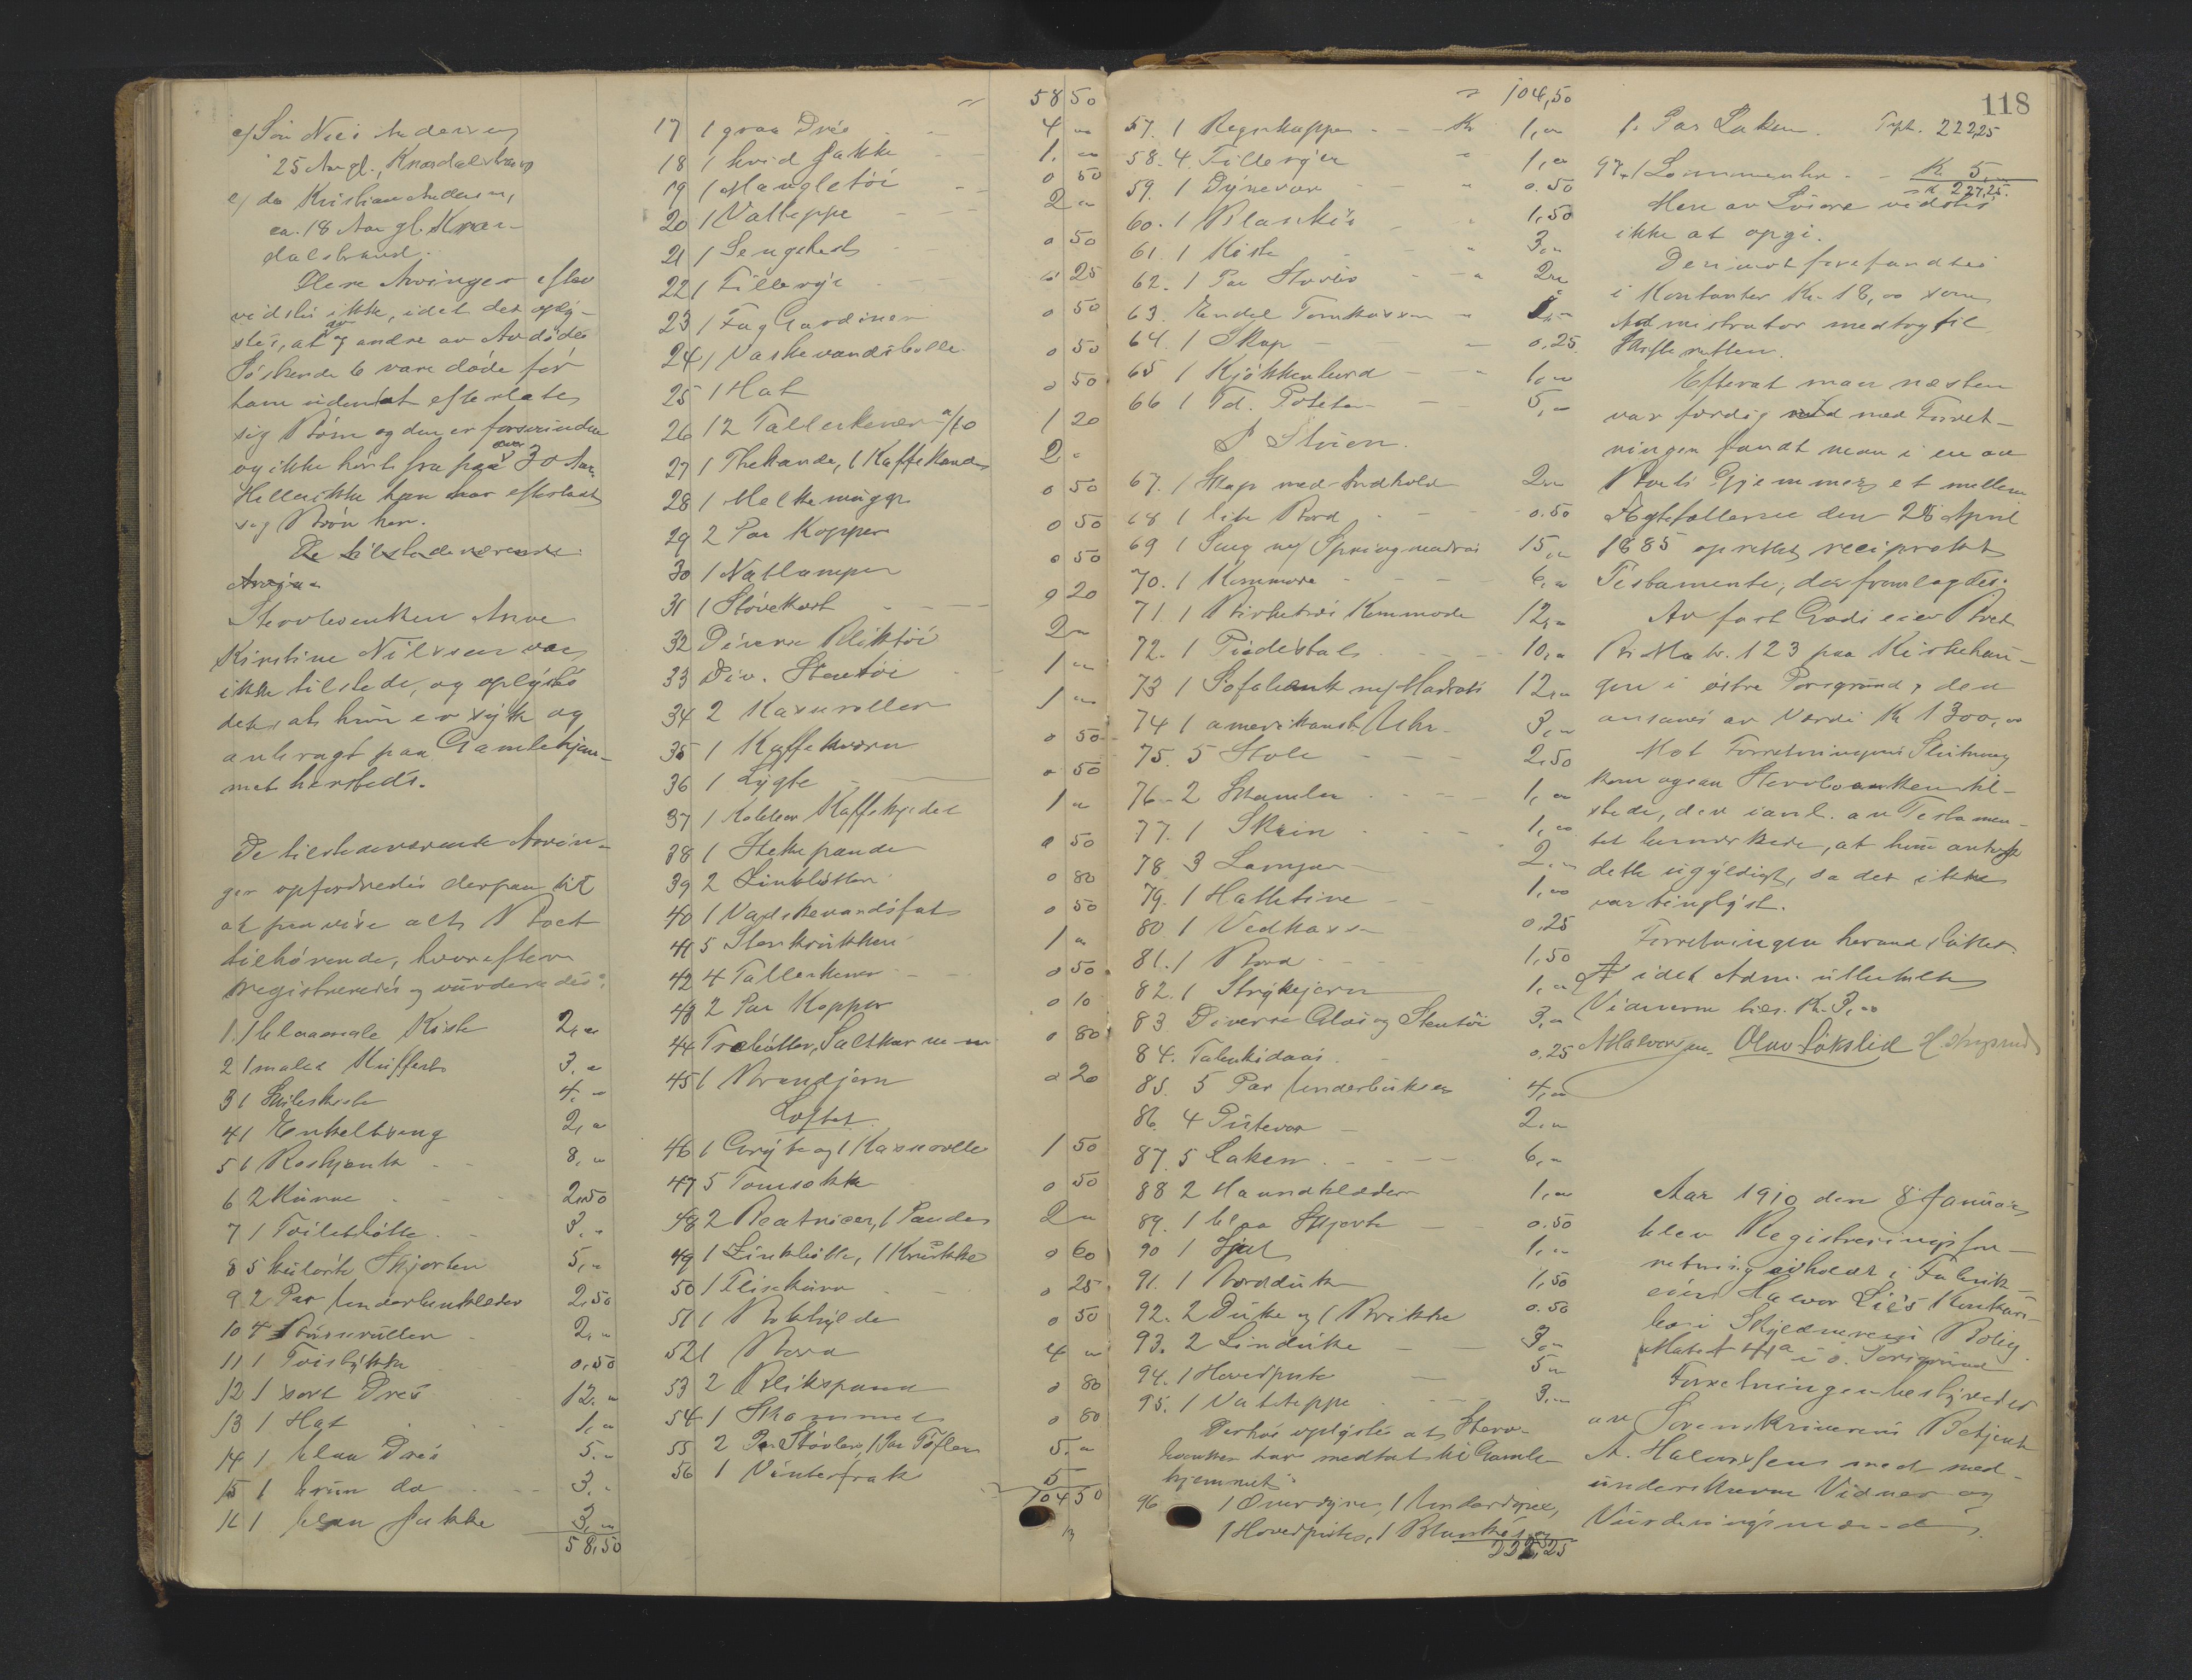 e) Søn Nils Andersen
25 Aar gl., Knardalstrand
e) do Kristian Andersen,
ca. 18 Aar gl. Knar-
dalstrand.
Flere Arvinger efter
vidstes ikke, idet det oply-
stes, at av andre av Avdødes
Søskende 6 vare døde før
ham uden at efterlate
sig Børn og den er forsvunden
og ikke hørt fra paa over 30 Aar.
Heller ikke han har efterlatt
sig Børn her.
De tilstedeværende
Arvin
Stervboenken Anne
Kirstine Nilssen var
ikke tilstede, og oplystes
det, at hun er syk og
anbragt paa Gamlehjem-
met hersteds.
De tilstedeværende Arvin-
ger opfordredes derpaa til
at paavise alt Boet
tilhørende, hvorefter
registreredes og vurderedes:
1. 1 blaamalt Kiste 2,00
2 1 malet Kuffert 3,00
3 1 Skibskiste 4,00
4 1 Enkeltseng 2,00
5 1 8,00
6 2 Kurve 2,50
7 1 Toiletbøtte 3,00
8 5 kulørte Skjorter 5,00
9 2 Par Underbenklæder 2,50
10 4 2,00
11 1 0,50
12 1 sort Dres 12,00
13 1 Hat 1,00
14 1 blaa Dres 5,00
15 1 brun do 3,00
16 1 blaa Jakke 3,00
58,50
58 50
17 1 graa Dres 4 00
18 1 hvid Jakke 1,00
19 1 Mangletøi 0 50
20 1 Vatteppe 2 00
21 1 Sengeklæde 0 50
22 1 Fillerye 0 25
23 1 Fag Gardiner 0 50
24 1 Vaskevandsbolle 0 50
25 1 Hat 0 50
26 12 Tallerkener a/10 1 20
27 1 Thekande, 1 Kaffekande 2 00
28 1 Melkemugge 0 50
29 2 Par Kopper 0 50
30 1 Natlampe 0 50
31 1 Støvekost 0 20
32 Diverse Bliktøi 2 00
33 Div. Stentøi 1 00
34 2 Kaseroller 1 00
35 1 Kaffekværn 0 50
36 1 Lygte 0 50
37 1 Kobber Kaffekjedel 1 00
38 1 Stekepande 0 50
39 2 Zinkbøtter 0 80
40 1 Vaskevandsfat 0 50
41 5 Stenkrukker 1 00
42 4 Tallerkener 0 50
43 2 Par Kopper 0 10
44 Træbøtter, Saltkar m m 0 80
45 1 Brændjern 0 20
Loftet
46 1 Gryte og 1 Kasserolle 1 50
47 5 Tomsække 0 50
48 2 , 1 Pande 2 00
49 1 Zinkbøtte, 1 Krukke 0 60
50 1 Flisekurv 0 25
51 1 Bokhylde 0 50
52 1 Bord 4 00
53 2 Blikspand 0 80
54 1 Skammel 0 80
55 2 Par Støvler, 1 Par Tøfler 5,00
56 1 Vinterfrak 5
104 50
118
104,50
57. 1 Regnkappe Kr 1,00
58. 4 Filleryer 1,00
59. 1 Dynevar 0.50
60. 1 Blanket 1,50
61. 1 Kiste 3,00
62. 1 Par Støvler 2,00
63. Endel Tomkasser 1,00
64. 1 Skap 0,25
65 1 Kjøkkenbord 1,00
66 1 Td. Poteter 5,00
I Stuen.
67. 1 Skap med Indhold 2,00
68 1 lite Bord 0.50
69 1 Seng m/ Springmadras 15,00
70. 1 Kommode 6,00
71 1 Birketræs Kommode 12,00
72. 1 Piedestal 10,00
73 1 Sofabænk m/ Madrats 12,00
74 1 amerikansk Uhr 3,00
75. 5 Stole 2,50
76. 2 Skamler 1,00
77. 1 Skrin 1,00
78 3 Lamper 2,00
79. 1 Hattetine 1,00
80 1 Vedkasse 0,25
81. 1 Bord 1,50
82. 1 Strykejern 1,00
83 Diverse Glas og Stentøi 3,00
84. Tobakdaas 0,25
85. 5 Par Underbukser 4,00
86. 4 Putevar 2,00
87. 5 Laken 6,00
88 2 Haandklæder 1,00
89. 1 blaa Skjorte 0.50
90 1 Sjal 1,00
91. 1 Bordduk 1,50
92. 2 Duke og 1 Brikke 0.50
93. 2 Linduke 3,00
94. 1 Hovedpute 5,00
95. 1 Vatteppe 3,00
Derhos oplystes at Sterv-
boenken har medtat til Gamle-
hjemmet:
96. 1 Overdyne, 1 Underdyne,
1 Hovedpute, 1 Blanket og
222,25
1 Par Laken. Trpt. 222,25
97. 1 Lommeuhr Kr 5,00
Kr. 227,25.
Mere av Løsøre vidstes
ikke at opgi.
Derimot forefandtes
i Kontanter Kr. 18,00 som
Administrator medtog til
Skifteretten.
Efterat man næsten
var færdig med Forret-
ningen fandt man i en av
Boets Gjemmer et mellem
Ægtefællerne den 28 April
1885 oprettet reciprokt
Testamente, der fremlagdes.
Av fast Gods eier Boet
Br Matr. 123 paa Kirkehau-
gen i østre Porsgrund, den
ansaaes av Værdi Kr 1300,00
Mot Forretningens Slutning
kom ogsaa Stervboenken til-
stede, der i anl. av Testamen-
tet bemerkede, at hun antok
dette ugyldigt, da det ikke
var tinglyst.
Forretningen herved sluttet
idet Adm. utbetalte
Vidnerne tils. Kr. 3,00
AHalvorsen. Olav Løkslid
Aar 1910 den 8 Januar
blev Registreringsfor-
retning avholdt i Fabrik-
eier Halvor Lie's Konkurs-
bo i Skjelmereins Bolig
Matr. No 41a i ø. Porsgrund
Forretningen bestyredes
av Sorenskriverens Betjent
A. Halvorsen med med-
underskrevne Vidner og
Vurderingsmænd.